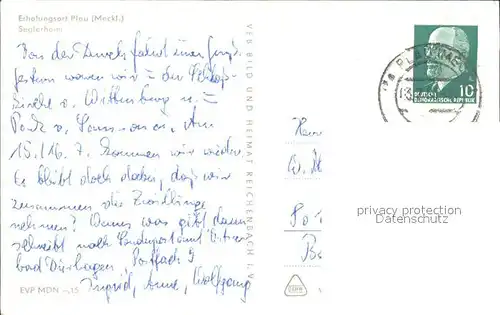 Erholungsort Plau (Meckl.)
Seglerheim
Von der Durchfahrt einen Gruß
gestern waren wir in der Schloß-
kirche v. Wittenberg u. im
Park v. Sanssouci. Am
15./16. 7. kommen wir wieder.
Es bleibt doch dabei, daß wir
zusammen die Zwillinge
nehmen? Wenn was gibt dann
schreibt nach
bad Dierhagen, Postfach 5
Ingrid, Wolfgang
EVP MDN -,15
VEB BILD UND HEIMAT REICHENBACH I. V.
PLAU
10
DEUTSCHE
DEMOKRATISCHE REPUBLIK
privacy protection
Datenschutz